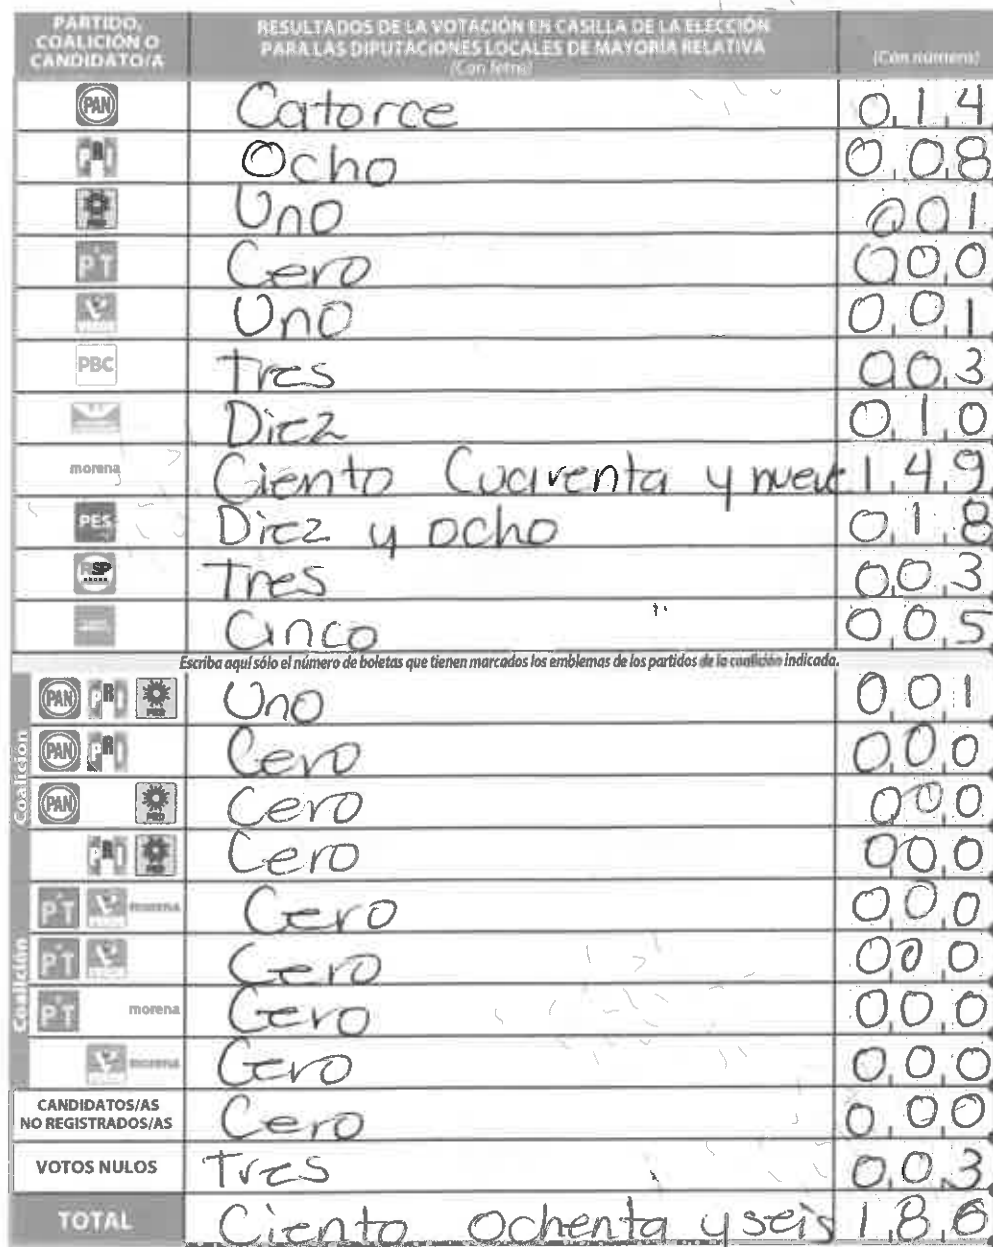 PARTIDO, COALICIÓN O CANDIDATO/A
RESULTADOS DE LA VOTACIÓN EN CASILLA DE LA ELECCIÓN PARA LAS DIPUTACIONES LOCALES DE MAYORÍA RELATIVA
(Con letra)
(Con número)
PAN Catorce 014
PRI Ocho 008
PRD Uno 001
PT Cero 000
VERDE Uno 001
PBC Tres 003
Diez 010
morena Ciento Cuarenta y nueve 149
PES Diez y ocho 018
RSP Tres 003
Cinco 005
Escriba aquí sólo el número de boletas que tienen marcados los emblemas de los partidos de la coalición indicada.
Coalición
PAN PRI PRD Uno 001
PAN PRI Cero 000
PAN PRD Cero 000
PRI PRD Cero 000
Coalición
PT VERDE morena Cero 000
PT VERDE Cero 000
PT morena Cero 000
VERDE morena Cero 000
CANDIDATOS/AS NO REGISTRADOS/AS Cero 000
VOTOS NULOS Tres 003
TOTAL Ciento ochenta y seis 186